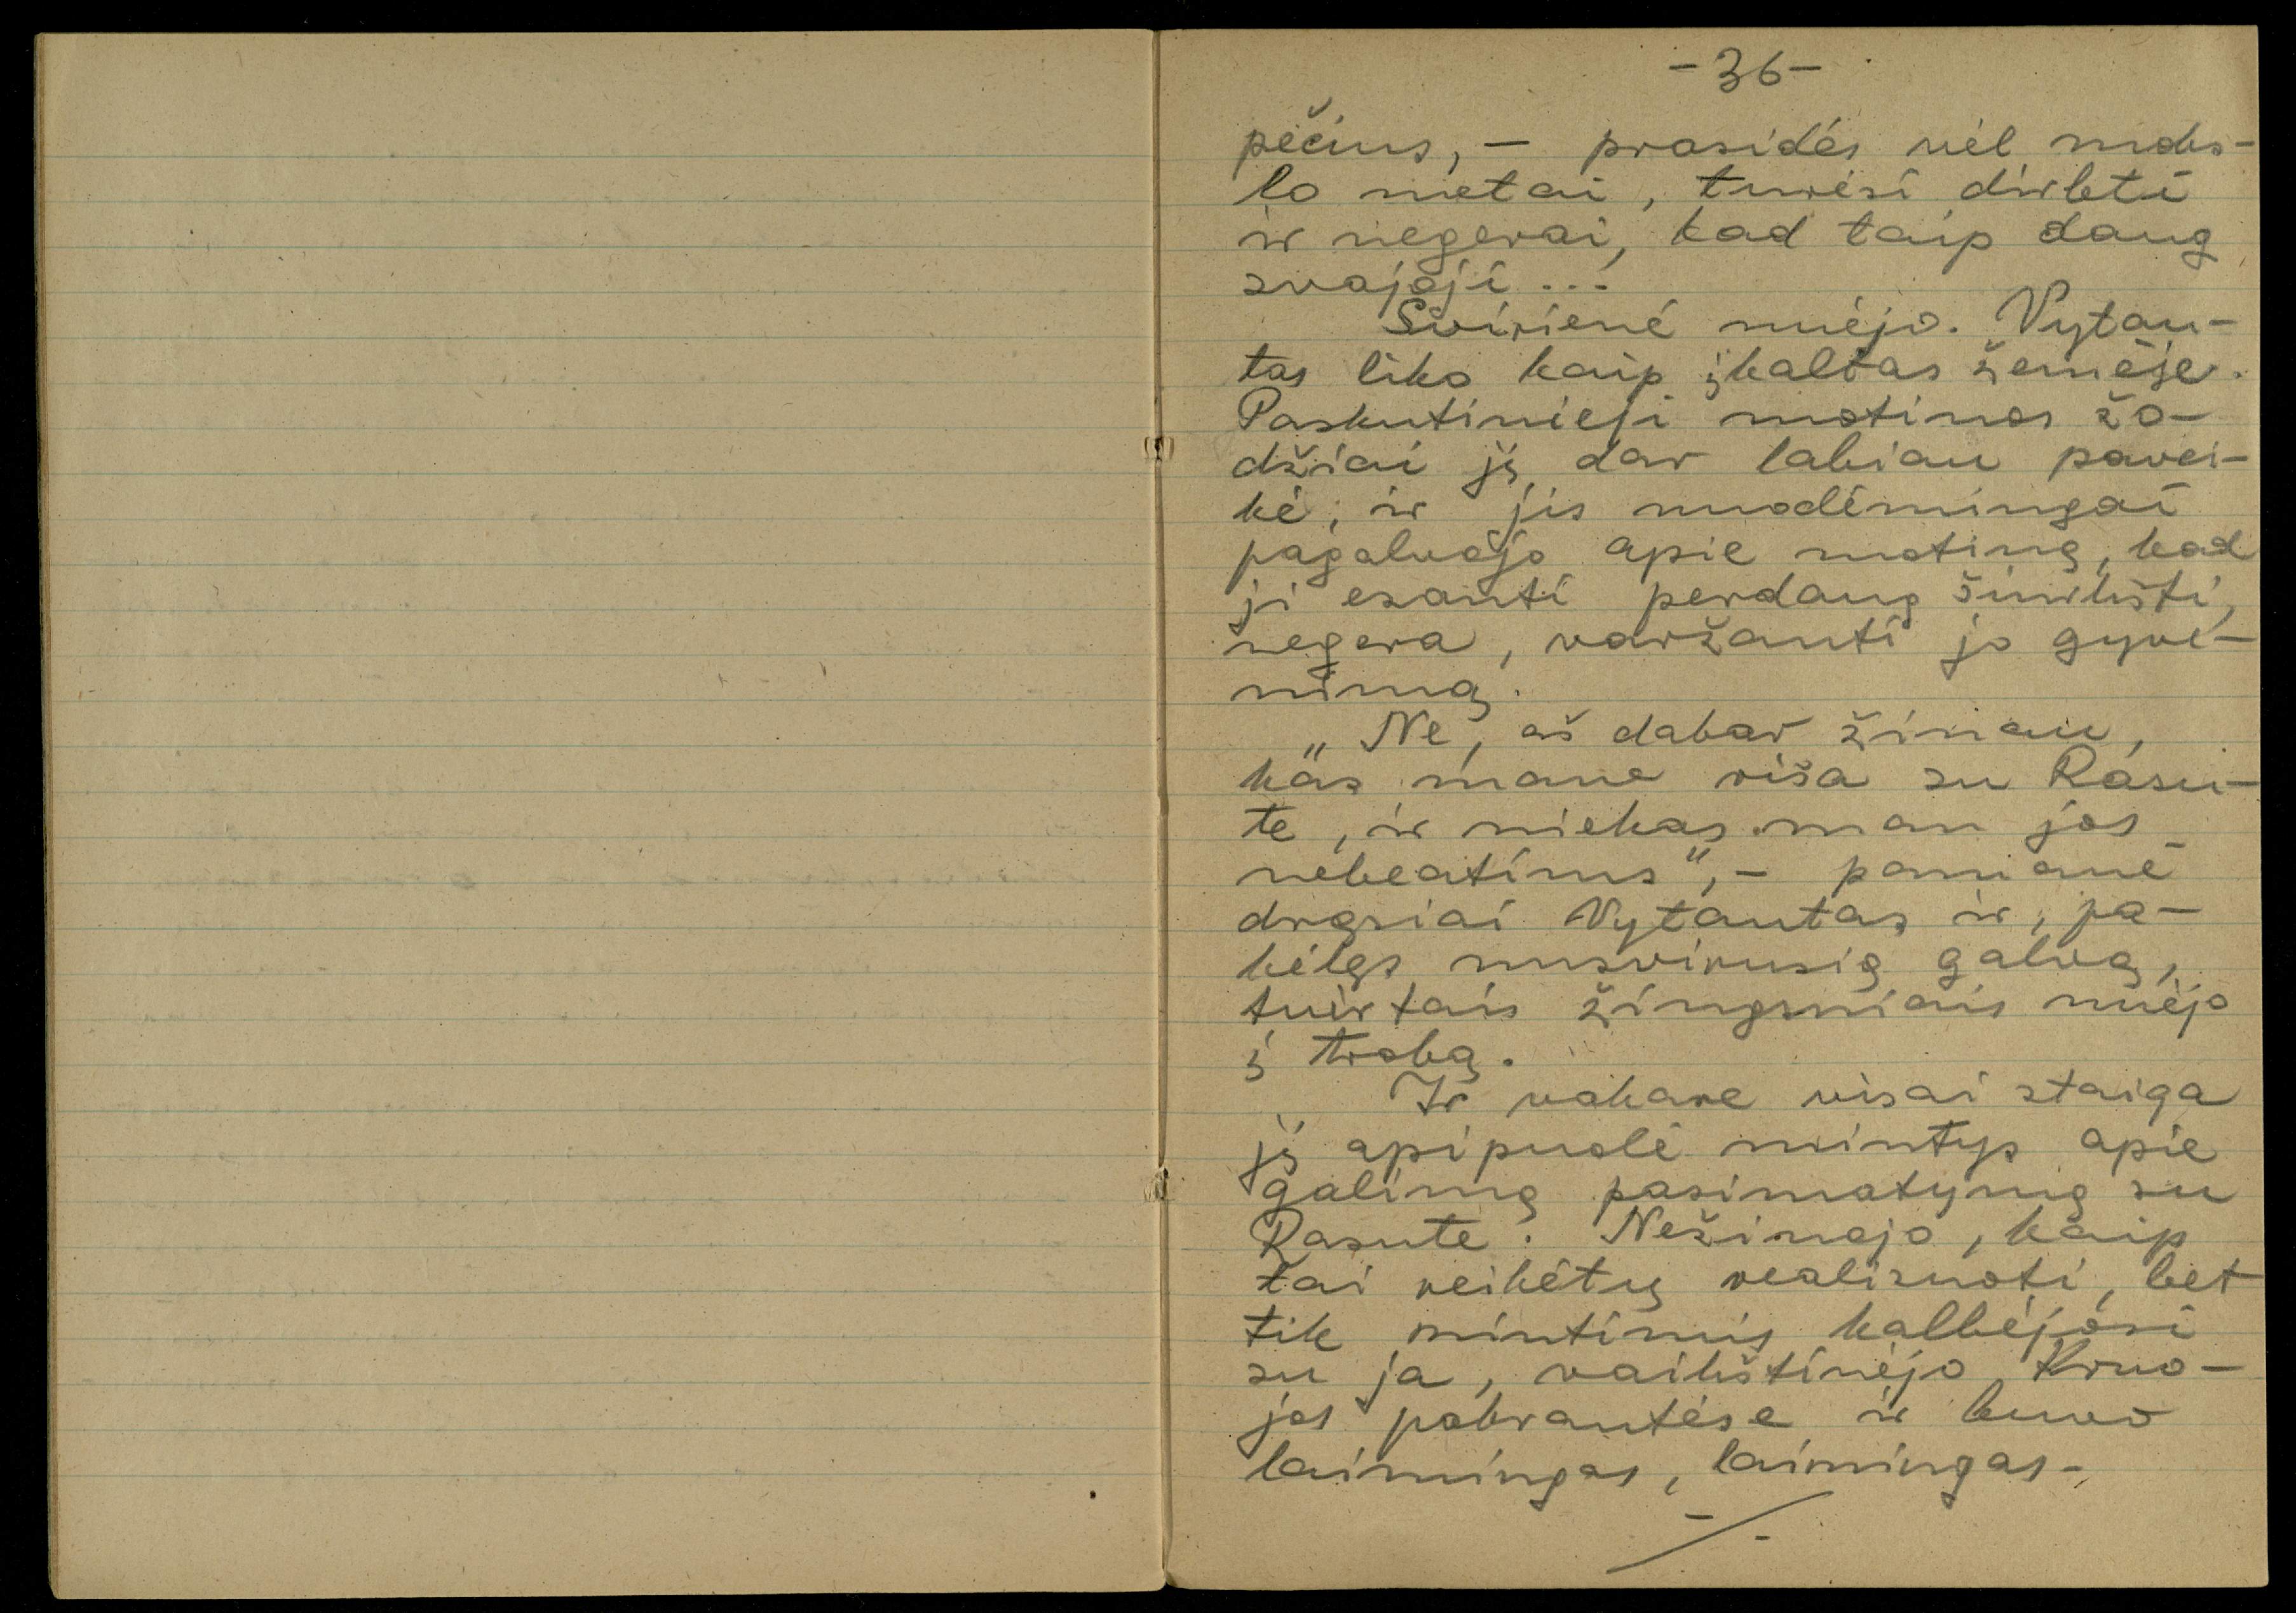 -36-
pečius, – prasidės vėl moks-
lo metai, turėsi dirbti
ir negerai, kad taip daug
svajoji...
Svirienė nuėjo. Vytau-
tas liko kaip įkaltas žemėje.
Paskutinieji motinos žo-
džiai jį dar labiau pavei-
kė, ir jis nuodėmingai
pagalvojo apie motiną, kad
ji esanti perdaug šiurkšti,
negera, varžanti jo gyve-
nimą.
„Ne, aš dabar žinau,
kas mane riša su Rasu-
te, ir niekas man jos
nebeatims", – pamanė
drąsiai Vytautas ir, pa-
kėlęs nusvirusią galvą,
tvirtais žingsniais nuėjo
į trobą.
Ir vakare visai staiga
jį apipuolė mintys apie
galimą pasimatymą su
Rasute. Nežinojo, kaip
tai reikėtų realizuoti, bet
tik mintimis kalbėjosi
su ja, vaikštinėjo Kruo-
jos pakrantėse ir buvo
laimingas, laimingas-